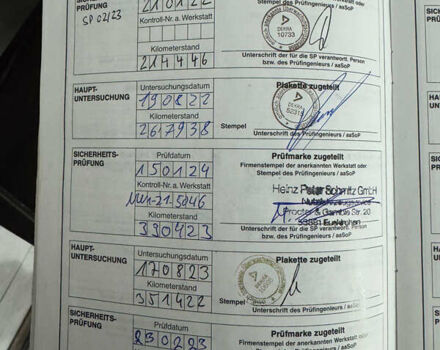 SICHERHEITS-
PRÜFUNG
SP 02/23
210122
Kontroll-Nr. a. Werkstatt
Kilometerstand
214446
Stempel des Prüfingenieurs / aaSoP
DEKRA
10733
Unterschrift der für die SP verantwort. Person
bzw. des Prüfingenieurs / aaSoP
HAUPT-
UNTERSUCHUNG
Untersuchungsdatum
190822
Kilometerstand
267938
Plakette zugeteilt
DEKRA
Stempel
Unterschrift des Prüfingenieurs / aaSoP
SICHERHEITS-
PRÜFUNG
Prüfdatum
150124
Kontroll-Nr. d. Werkstatt
Kilometerstand
390423
Prüfmarke zugeteilt
Firmenstempel der anerkannten Werkstatt oder
Stempel des Prüfingenieurs / aaSoP
Heinz Peter Schmitz GmbH
Procter & Gamble Str. 20
Euskirchen
Unterschrift der für die SP verantwort. Person
bzw. des Prüfingenieurs / aaSoP
HAUPT-
UNTERSUCHUNG
Untersuchungsdatum
170823
Kilometerstand
351422
Plakette zugeteilt
Stempel
Unterschrift des Prüfingenieurs / aaSoP
SICHERHEITS-
PRÜFUNG
Prüfdatum
230223
Prüfmarke zugeteilt
Firmenstempel der anerkannten Werkstatt oder
Stempel des Prüfingenieurs / aaSoP